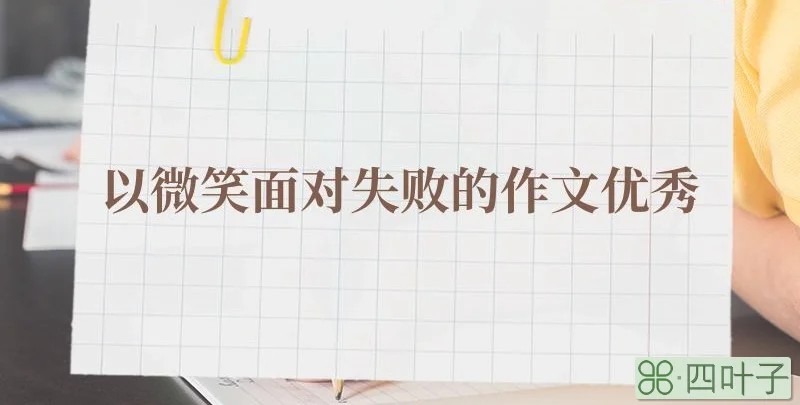 以微笑面对失败的作文优秀
四叶子